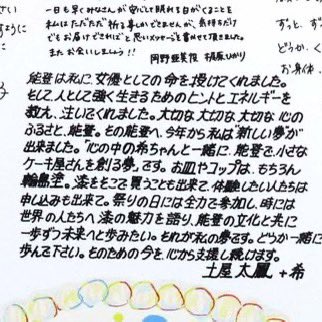 さい
ように
一日も早くみなさんが安心して眠れる日がくることを
私はただただ祈る事しかできませんが、気持ちだけ
でもお届けできればと思いメッセージを書かせて頂きました。
またお会いしましょう！！
岡野亜美役 梶原ひかり
ずっと、ず
どうか、く
お身体
能登は私に、女優としての命を授けてくれました。
そして、人として強く生きるためのヒントとエネルギーを
教え、注いでくれました。大切な大切な大切な心の
ふるさと、能登。その能登へ、今年から私は「新しい夢」が
出来ました。「心の中の希ちゃんと一緒に、能登で、小さな
ケーキ屋さんを創る夢」です。お皿やコップは、もちろん
輪島塗。漆をそこで買うことも出来て、体験したい人たちは
申し込みも出来て。祭りの日には全力で参加し、時には
世界の人たちへ漆の魅力を語り、能登の文化と共に
一歩ずつ未来へと歩みたい。それが私の夢です。どうか一緒に
歩んで下さい。そのための今を、心から支援し続けます。
土屋太鳳 +希